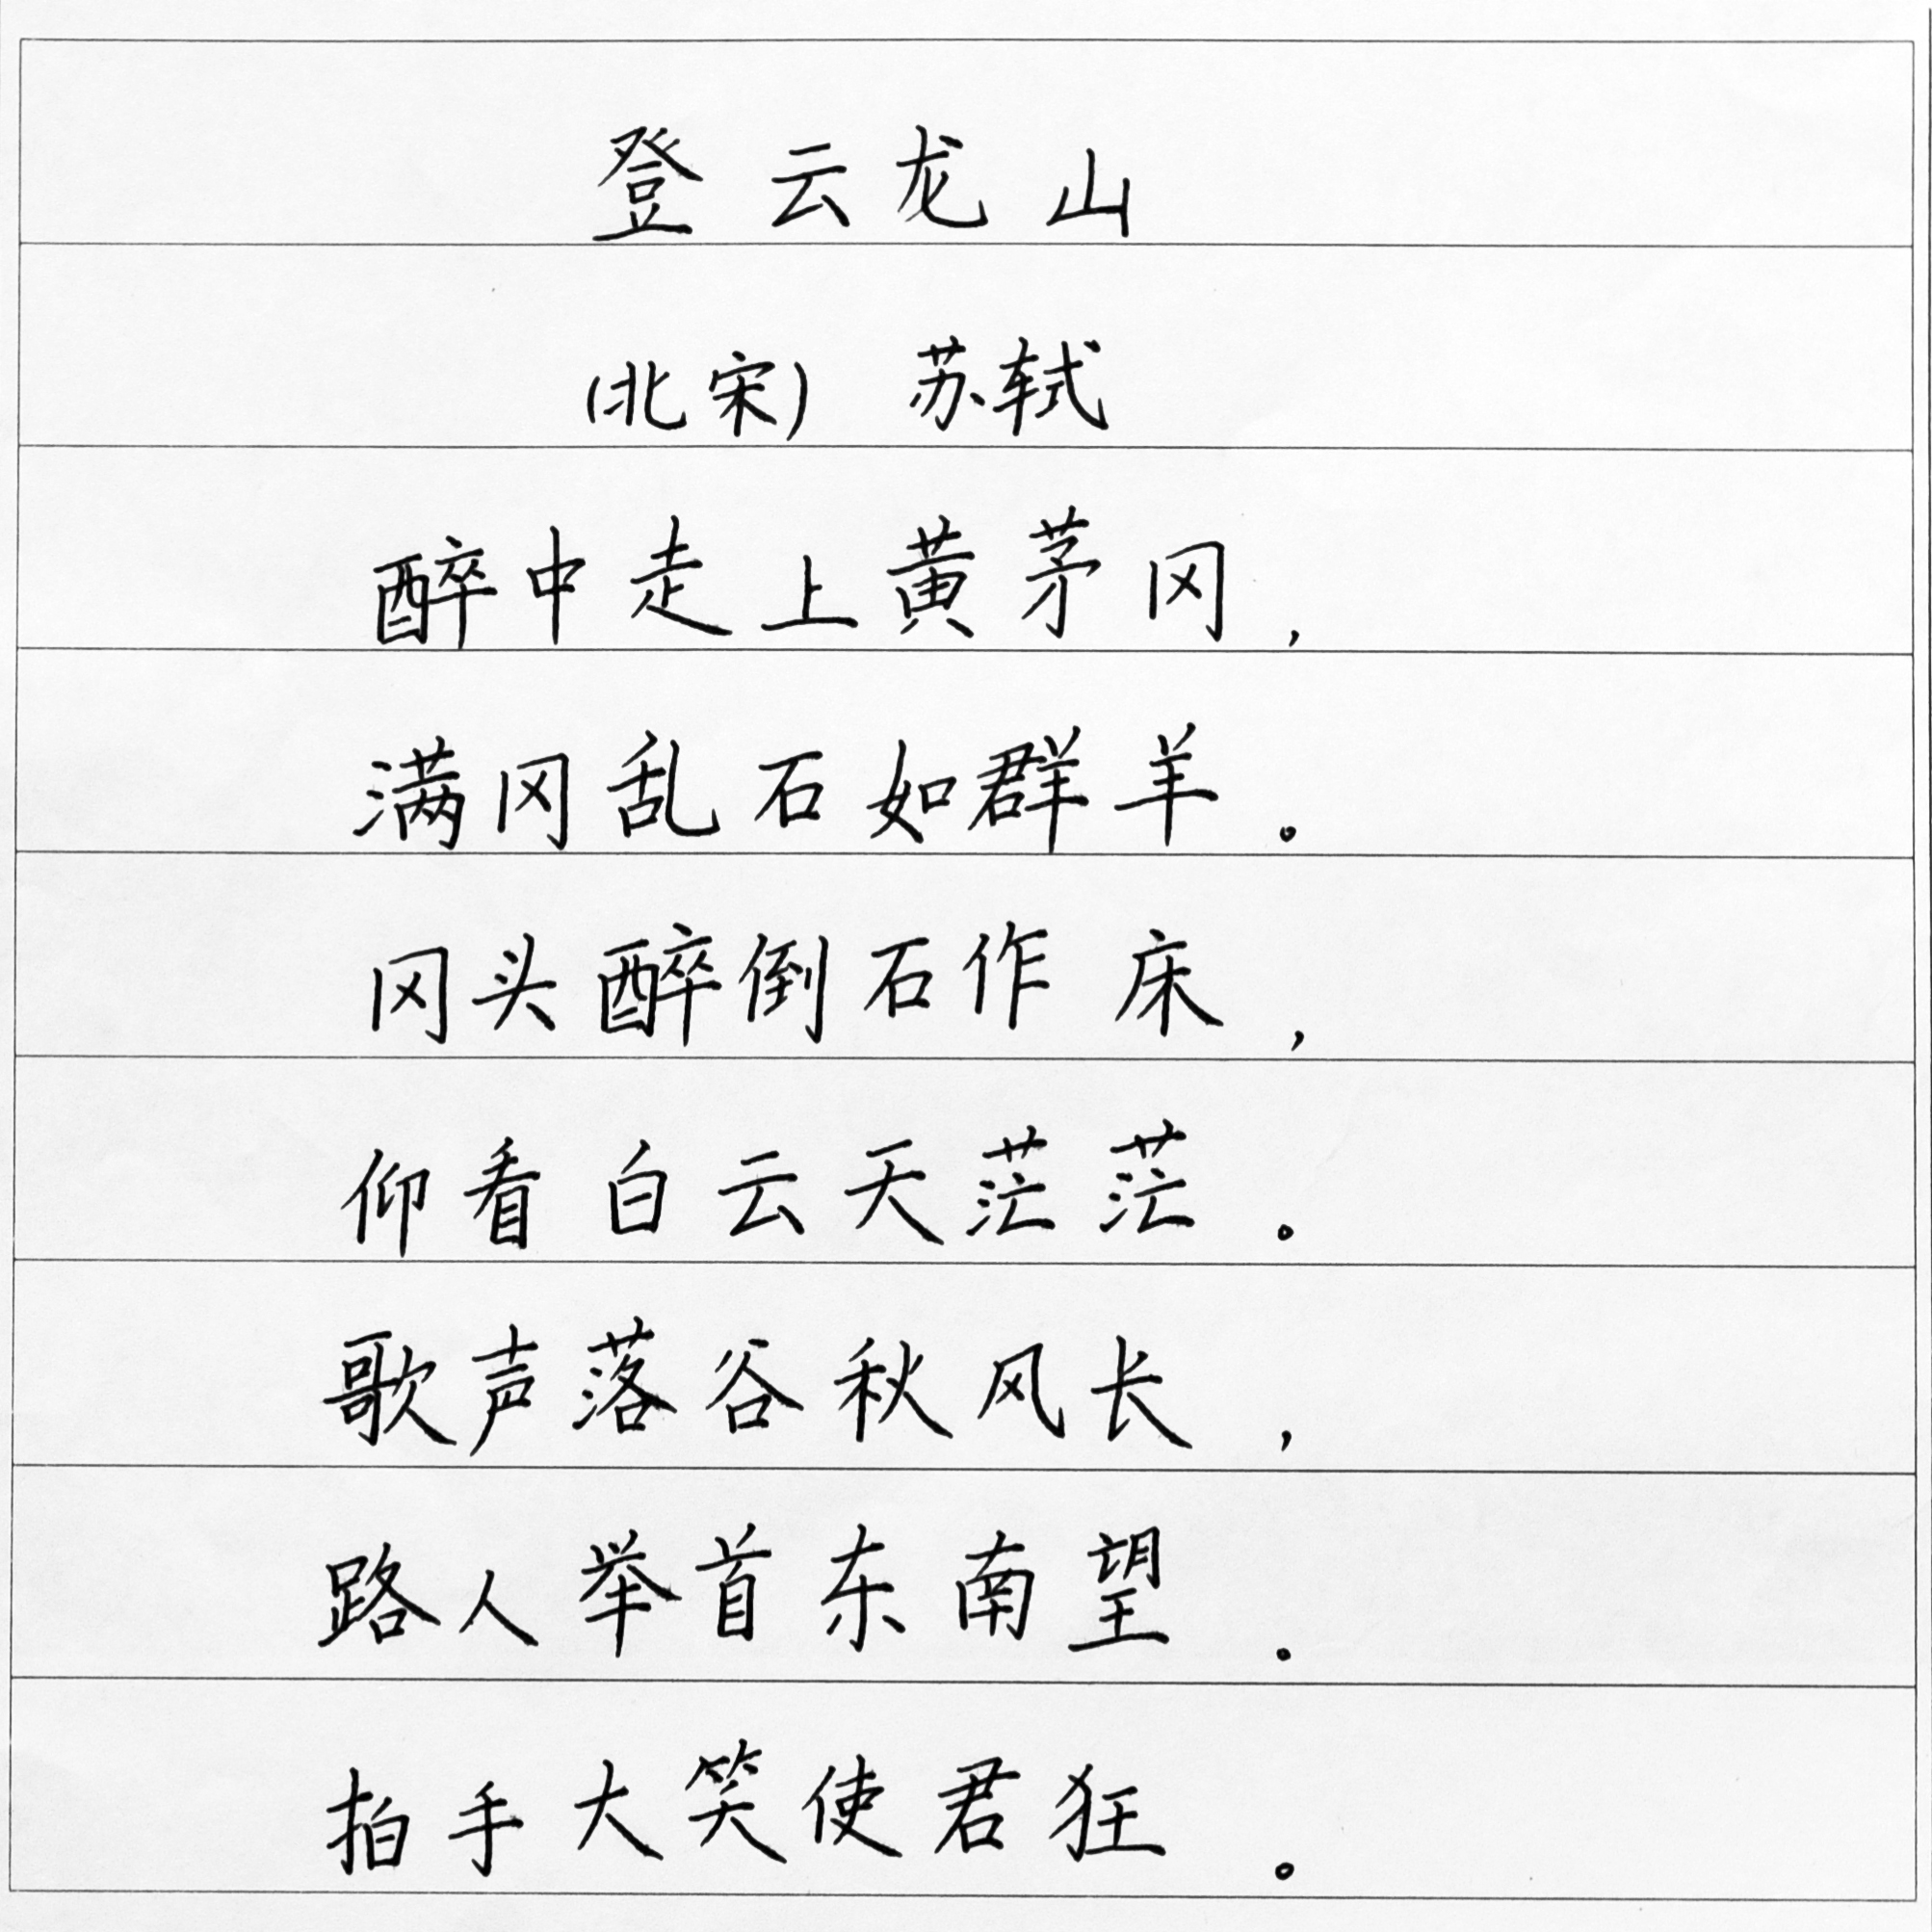 登云龙山
(北宋) 苏轼
醉中走上黄茅冈,
满冈乱石如群羊。
冈头醉倒石作床,
仰看白云天茫茫。
歌声落谷秋风长,
路人举首东南望。
拍手大笑使君狂。